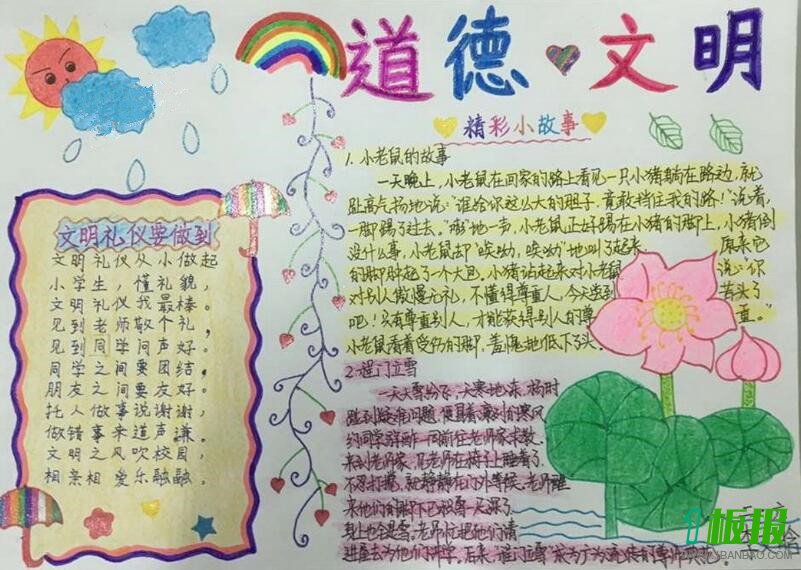 道德文明
精彩小故事
文明礼仪要做到
文明礼仪从小做起
小学生，懂礼貌，
文明礼仪我最棒。
见到老师敬个礼，
见到同学问声好。
同学之间要团结，
朋友之间要友好。
托人做事说谢谢，
做错事来道声谦。
文明之风吹校园，
相亲相爱乐融融。
1.小老鼠的故事
一天晚上，小老鼠在回家的路上看见一只小猪躺在路边，就
趾高气扬地说："谁给你这么大的胆子，竟敢挡住我的路！"说着，
一脚踢了过去。"嘭"地一声，小老鼠正好踢在小猪的脚上，小猪倒
没什么事，小老鼠却"哎呦，哎呦"地叫了起来。原来它
的脚肿起了一个大包，小猪站起来对小老鼠说："你
对别人傲慢无礼，不懂得尊重人，今天尝到苦头了
吧！只有尊重别人，才能获得别人的尊重。"
小老鼠看着受伤的脚，羞愧地低下了头。
2.程门立雪
一天大雪纷飞，天寒地冻，杨时
碰到疑难问题，便冒着凛冽的寒风
约同学一同前往老师家求教，
来到老师家，见老师在椅子上睡着了，
不忍打扰，就静静在门外等候。老师醒
来他们的脚下已积雪一尺深了，
身上也是雪。老师忙把他们请
进屋去为他们讲学。后来，"程门立雪"成为广为流传的尊师
板报